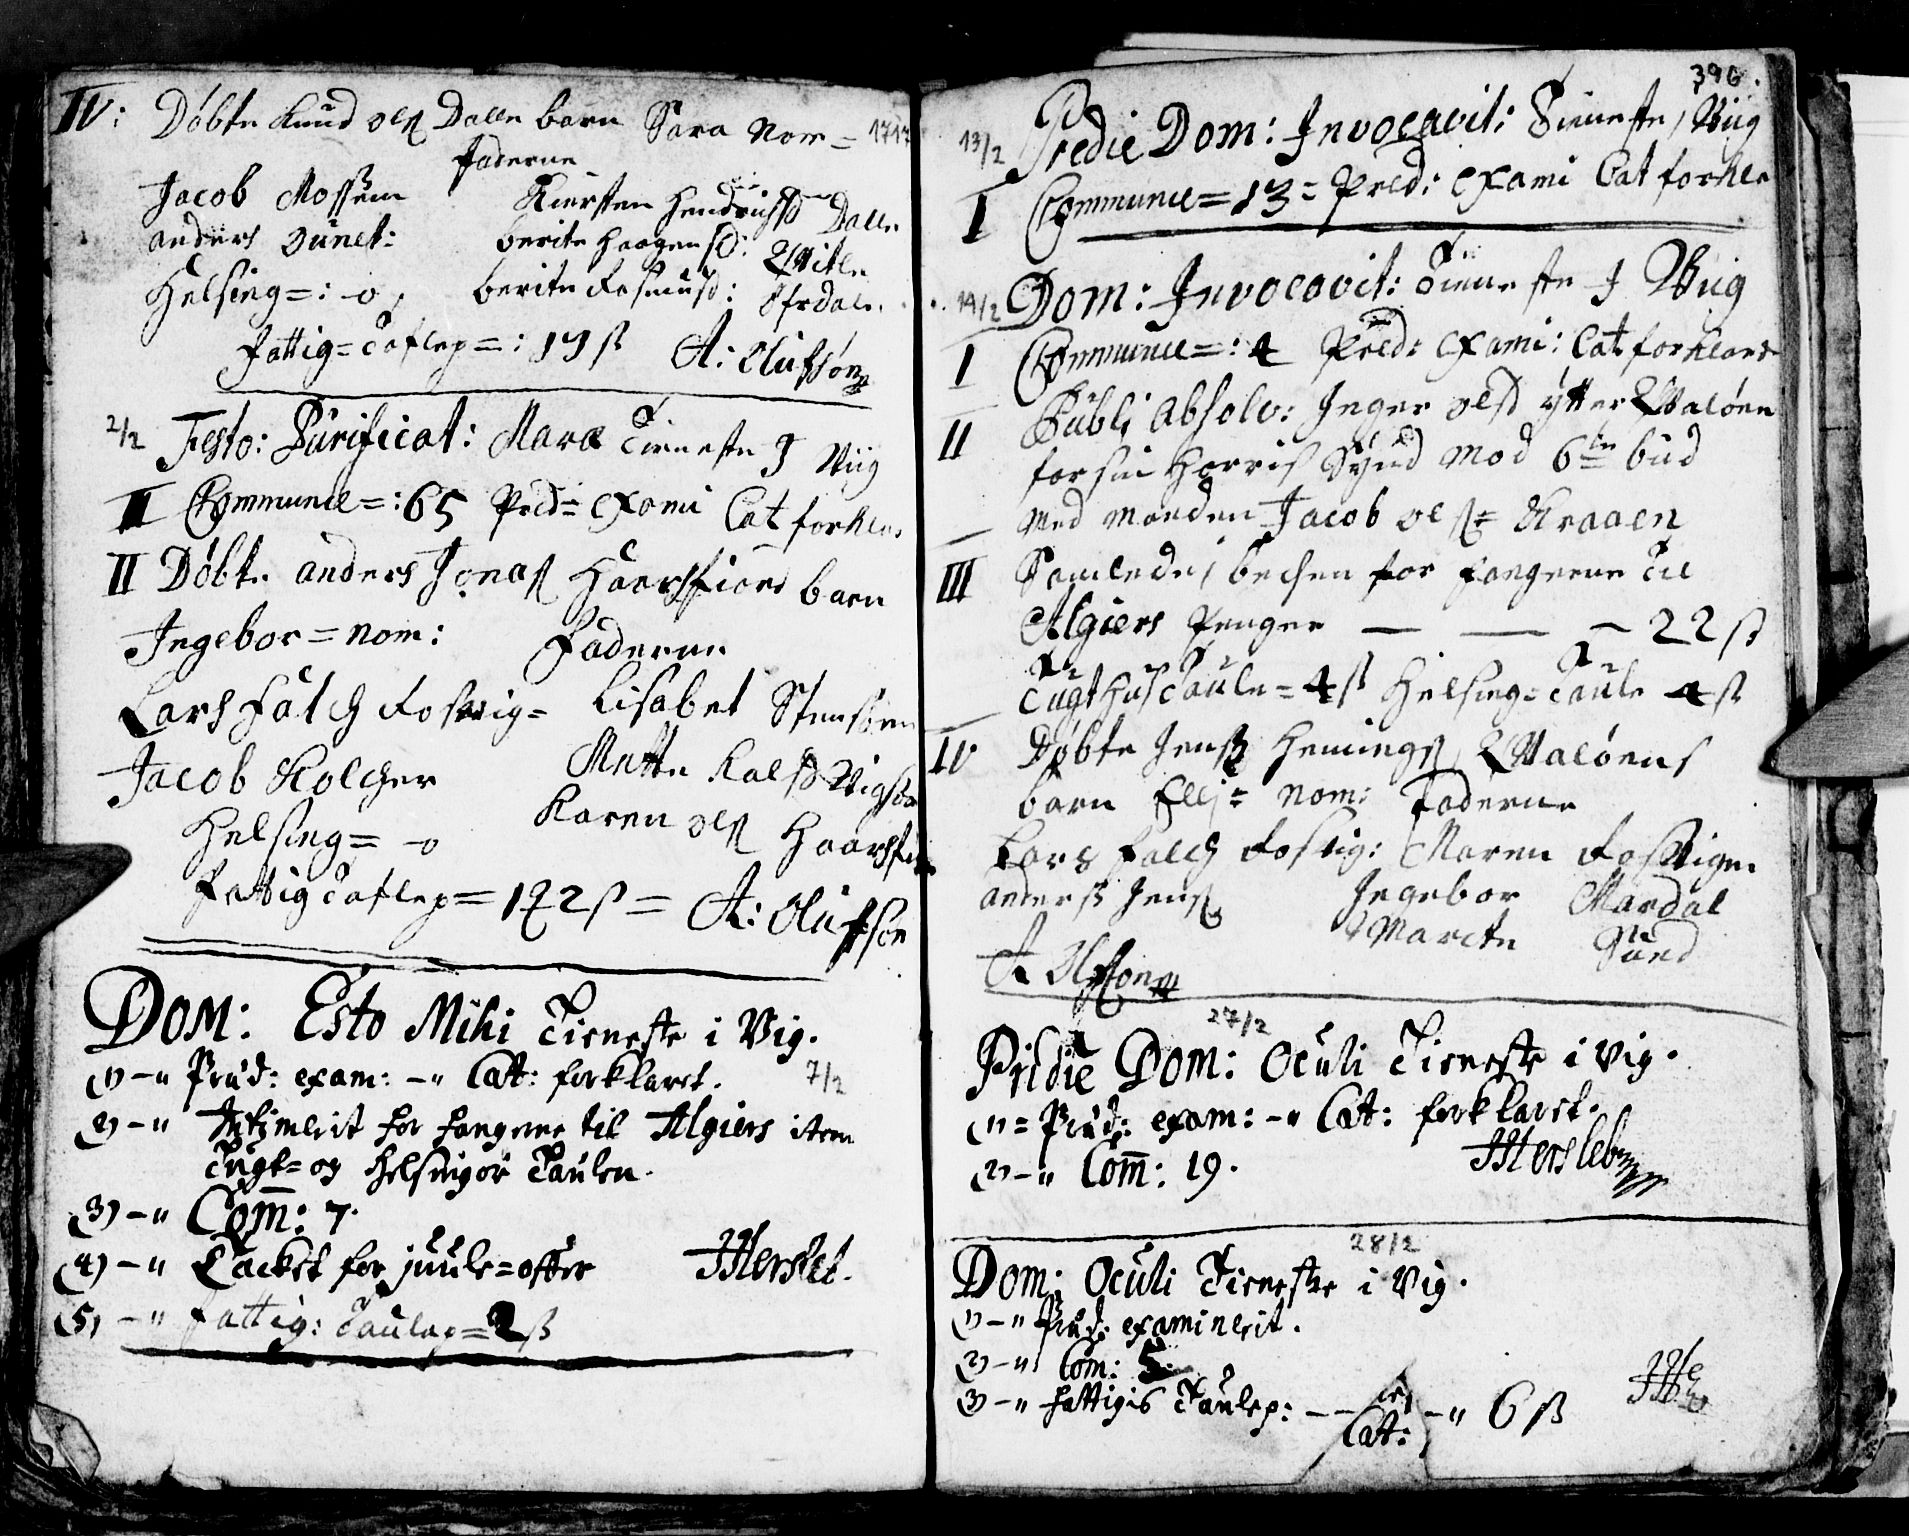 IV: Døbte Knud Olß Dalle barn Sara Nom= 1717
Faderne
Jacob Mossem Kiersten Hendrichsd Dalle
anders Dünet: berite Haagensd:
Helsing=: -o, berite Rasmusd: Ofrdal
fattig=Taflep=: 19 ß A: Olufsøn
2/2 Festo: Purificat: Maræ Tieneste J Viig
III Communic=: 65 Præd= Exami Cat forkla
II Døbt. anders Jonaß Haarsfiord barn
Ingebor= nom: Faderne
Lars Falch Rosvig= Lisabet Stensøen
Jacob Kolcher Mette
Helsing= -o Karen Olß Haarsfi
Fattig Taflep= 1 2 ß = A: Olufsøn
Dom: Esto Mihi Tieneste i Vig.
(1) -" Præd: exam: -" Cat: forklaret. 7/2
(2) -" Intimerit for fangerne til Algiers item
Tugt= og Helsingør Taulen.
(3) -" Com̄: 7.
(4) -" Tacket for juule=offer JHerslet.
(5) -" fattig: Taulep= 2 ß
396.
13/2 Predie Dom: Invocavit: Tieneste i Wiig
I Communic= 13= Præd: Exami Cat forkle
14/2 Dom: Invocavit: Tieneste J Wiig
I Communic=: 4 Præd: Exami: Cat forklare
II Publi Absolv: Inger Olsd ytter Qvaløen
for sin Horris Synd Mod 6te bud
med manden Jacob Olß= Kraaen
III Samlede i bechen for Fangerne Til
Algiers Penger — — - 22 ß
Tugthus Taule= 4 ß Helsing= Taule 4 ß
IV Døbte Jenß Hemingß Qvaløens
barn Elli= nom: Faderne
Lars Falch Rosvig: Maren Rosvigen
anders Jenß Ingebor Mardal
Marete Sund
A Olufson
27/2
Pridie Dom: Oculi Tieneste i Vig.
(1) = Præd: exam: -" Cat: forklaret.
(2) -" Com̄: 19. JHersleb
28/2
Dom: Oculi Tieneste i Vig.
(1) -" Præd: examinerit.
(2) -" Com: 5.
(3) -" fattigis Taulep: - - -" 6 ß
Cat: